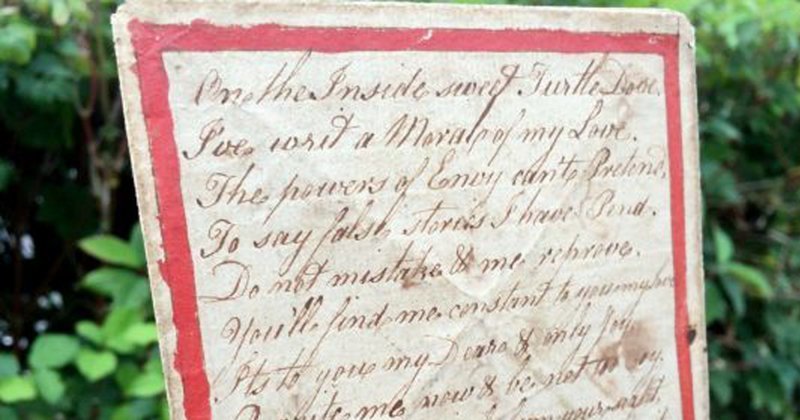 On the Inside sweet Turtle Dove.
I've writ a Moral of my Love.
The powers of Envy cant Pretend,
To say false stories I have Pend.
Do not mistake & me reprove.
You'll find me constant to you my love
Its to you my Deare & only you
now & be not coy,
your